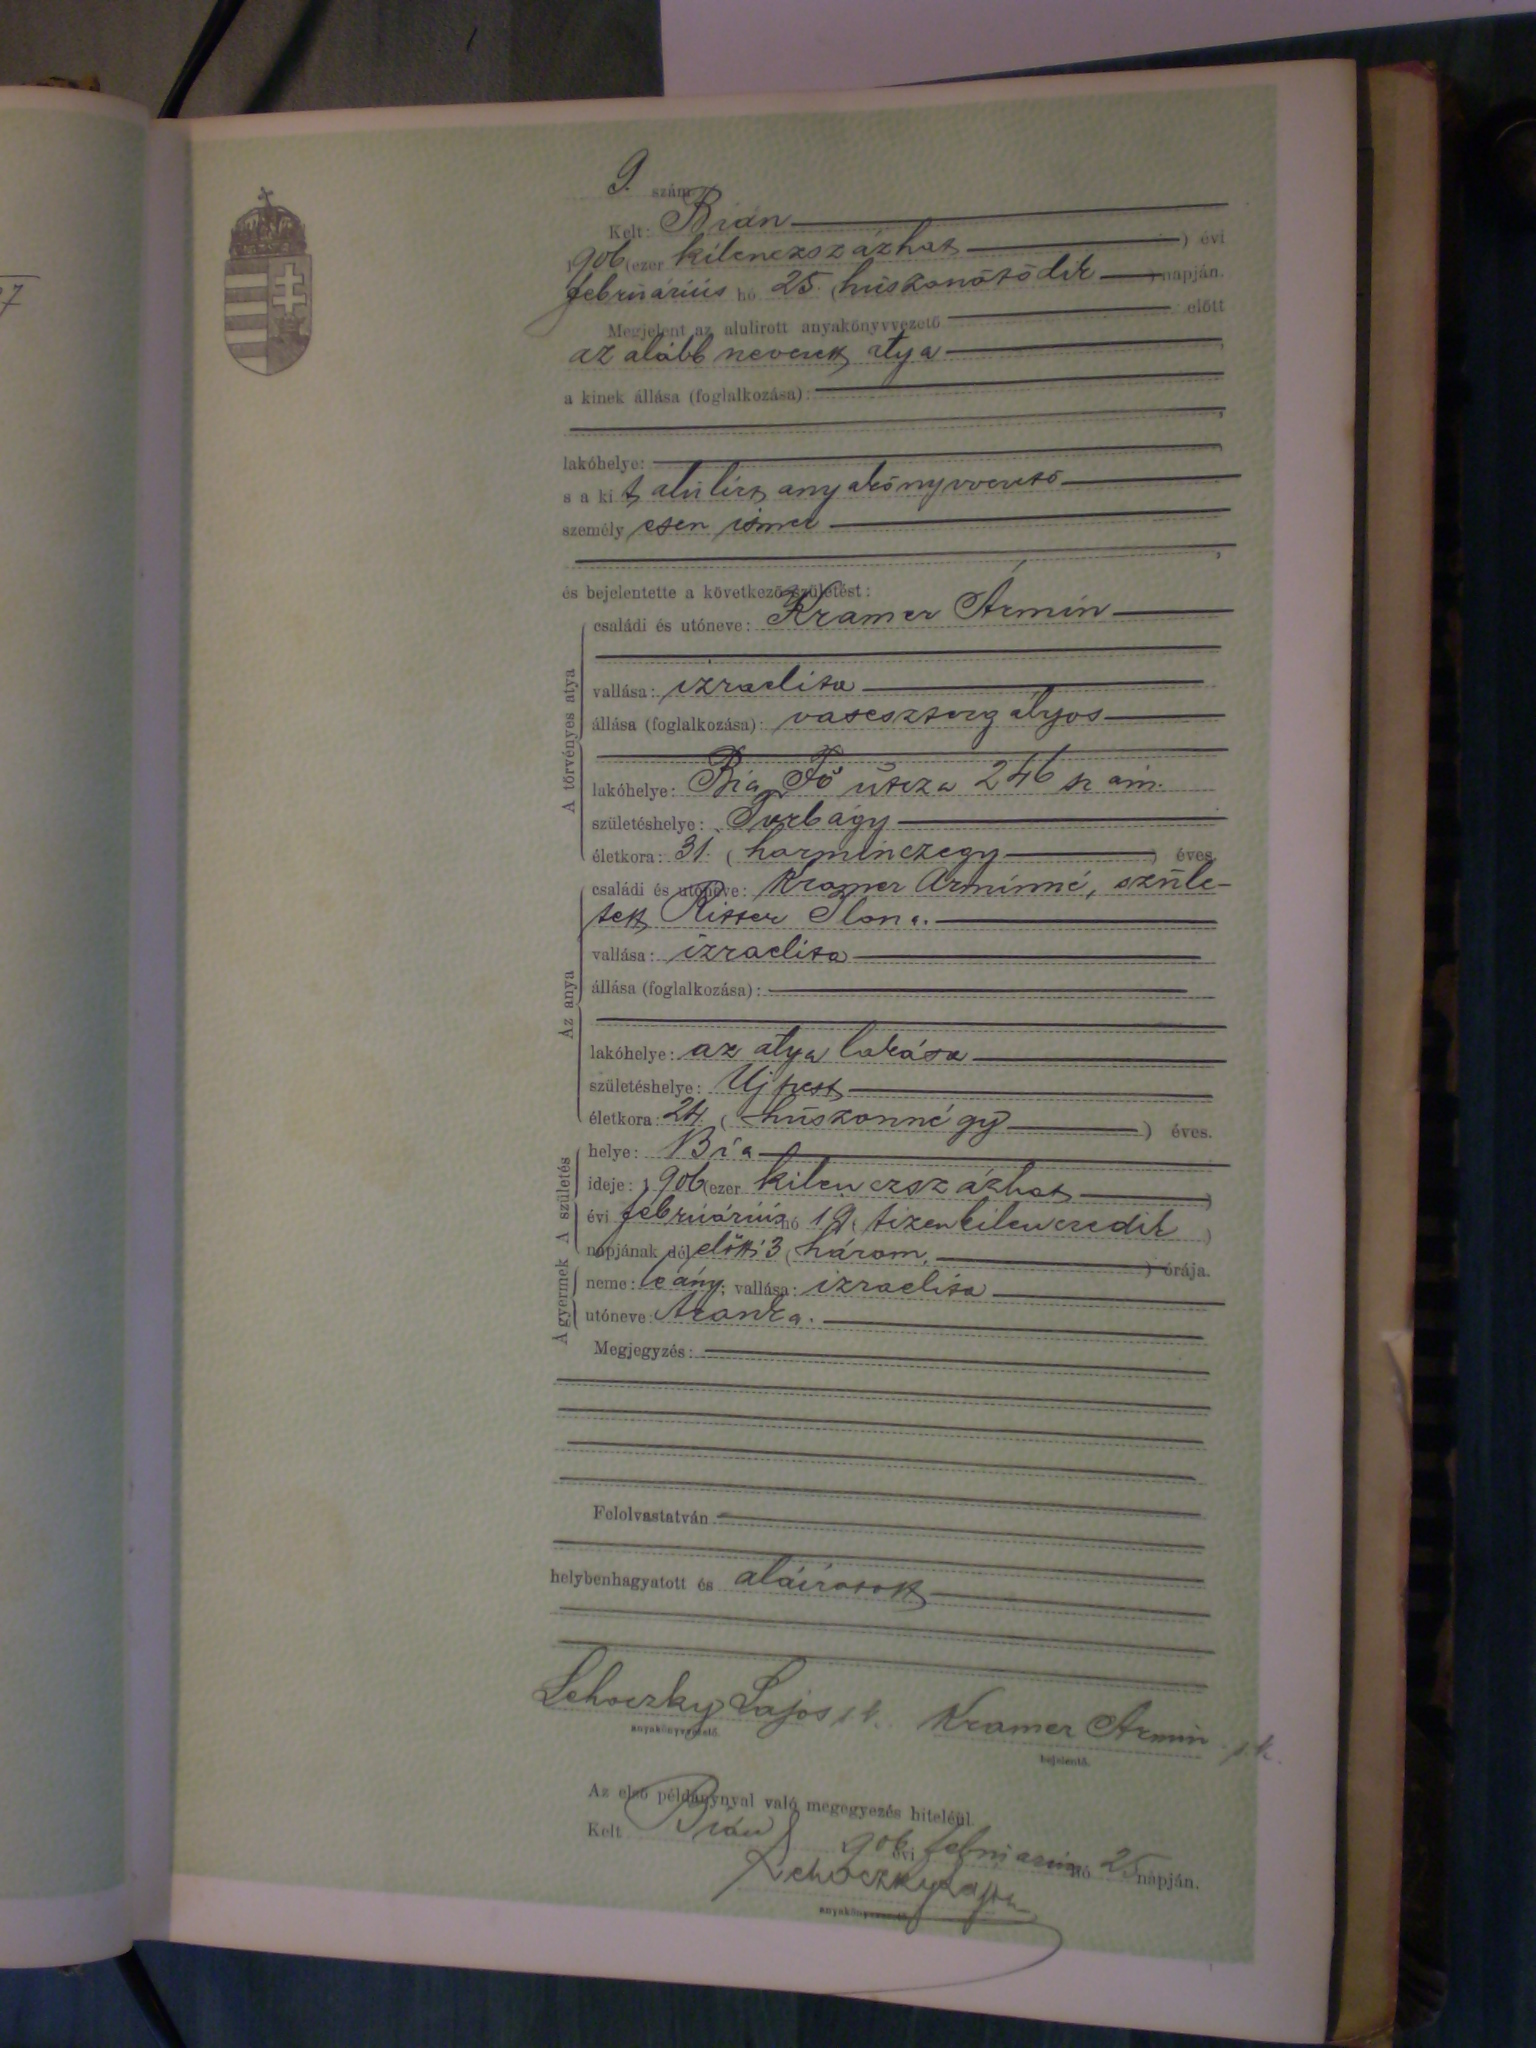 7
9. szám.
Kelt: Bián
1906 (ezer kilenczszázhat ) évi
februárius hó 25. (huszonötödik ) napján.
Megjelent az alulirott anyakönyvvezető előtt
az alább nevezett atya
a kinek állása (foglalkozása):
lakóhelye:
s a kit alulirt anyakönyvvezető
személyesen ismer
és bejelentette a következő születést:
A törvényes atya
családi és utóneve: Kramer Ármin
vallása: izraelita
állása (foglalkozása): vasesztergályos
lakóhelye: Bia Fő utcza 246 sz
születéshelye: Torbágy
életkora: 31. (harminczegy ) éves.
Az anya
családi és utóneve: Kramer Árminné, szüle-
tett Ritter Ilona.
vallása: izraelita
állása (foglalkozása):
lakóhelye: az atya lakása
születéshelye: Ujpest
életkora: 24. (huszonnégy ) éves.
A gyermek A születés
helye: Bia
ideje: 1906 (ezer kilenczszázhat )
évi februárius hó 19. (tizenkilenczedik )
napjának délelőtti 3 (három. ) órája.
neme: leány; vallása: izraelita
utóneve: Aranka.
Megjegyzés:
Felolvastatván
helybenhagyatott és aláiratott
Lehoczky Lajos s.k. Kramer Ármin s.k.
anyakönyvvezető. bejelentő.
Az első példánynyal való megegyezés hiteléül
Kelt Bián, 906 évi februárius hó 25 napján.
Lehoczky Lajos
anyakönyvvezető.